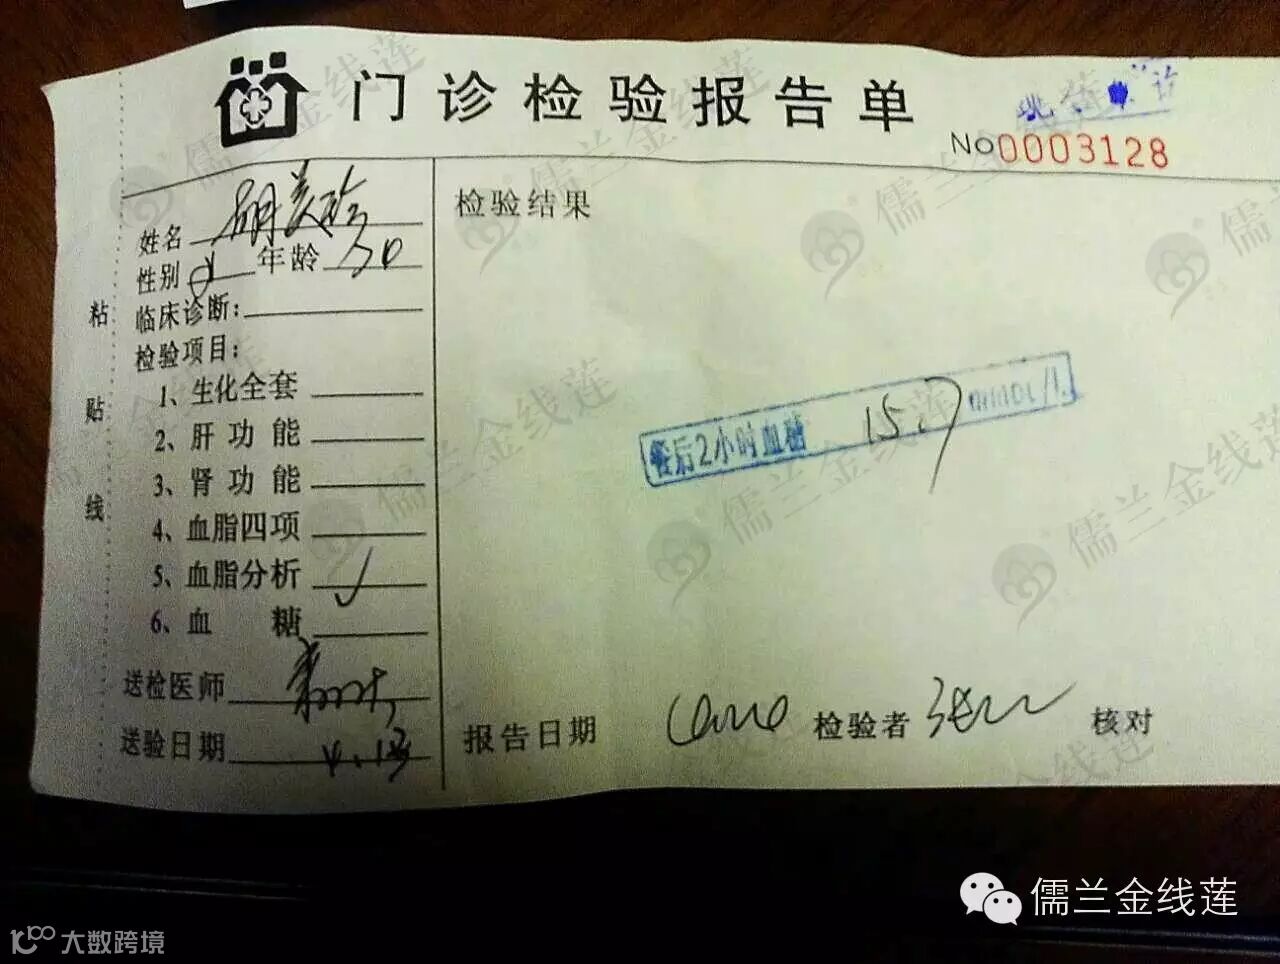 门诊检验报告单
No0003128
姓名 胡美珍
性别 女 年龄 50
临床诊断:
检验项目:
1、生化全套
2、肝功能
3、肾功能
4、血脂四项
5、血脂分析 √
6、血 糖
送检医师
送验日期
粘贴线
检验结果
餐后2小时血糖 15.7 mmol/L
报告日期 检验者 核对
儒兰金线莲
大数跨境